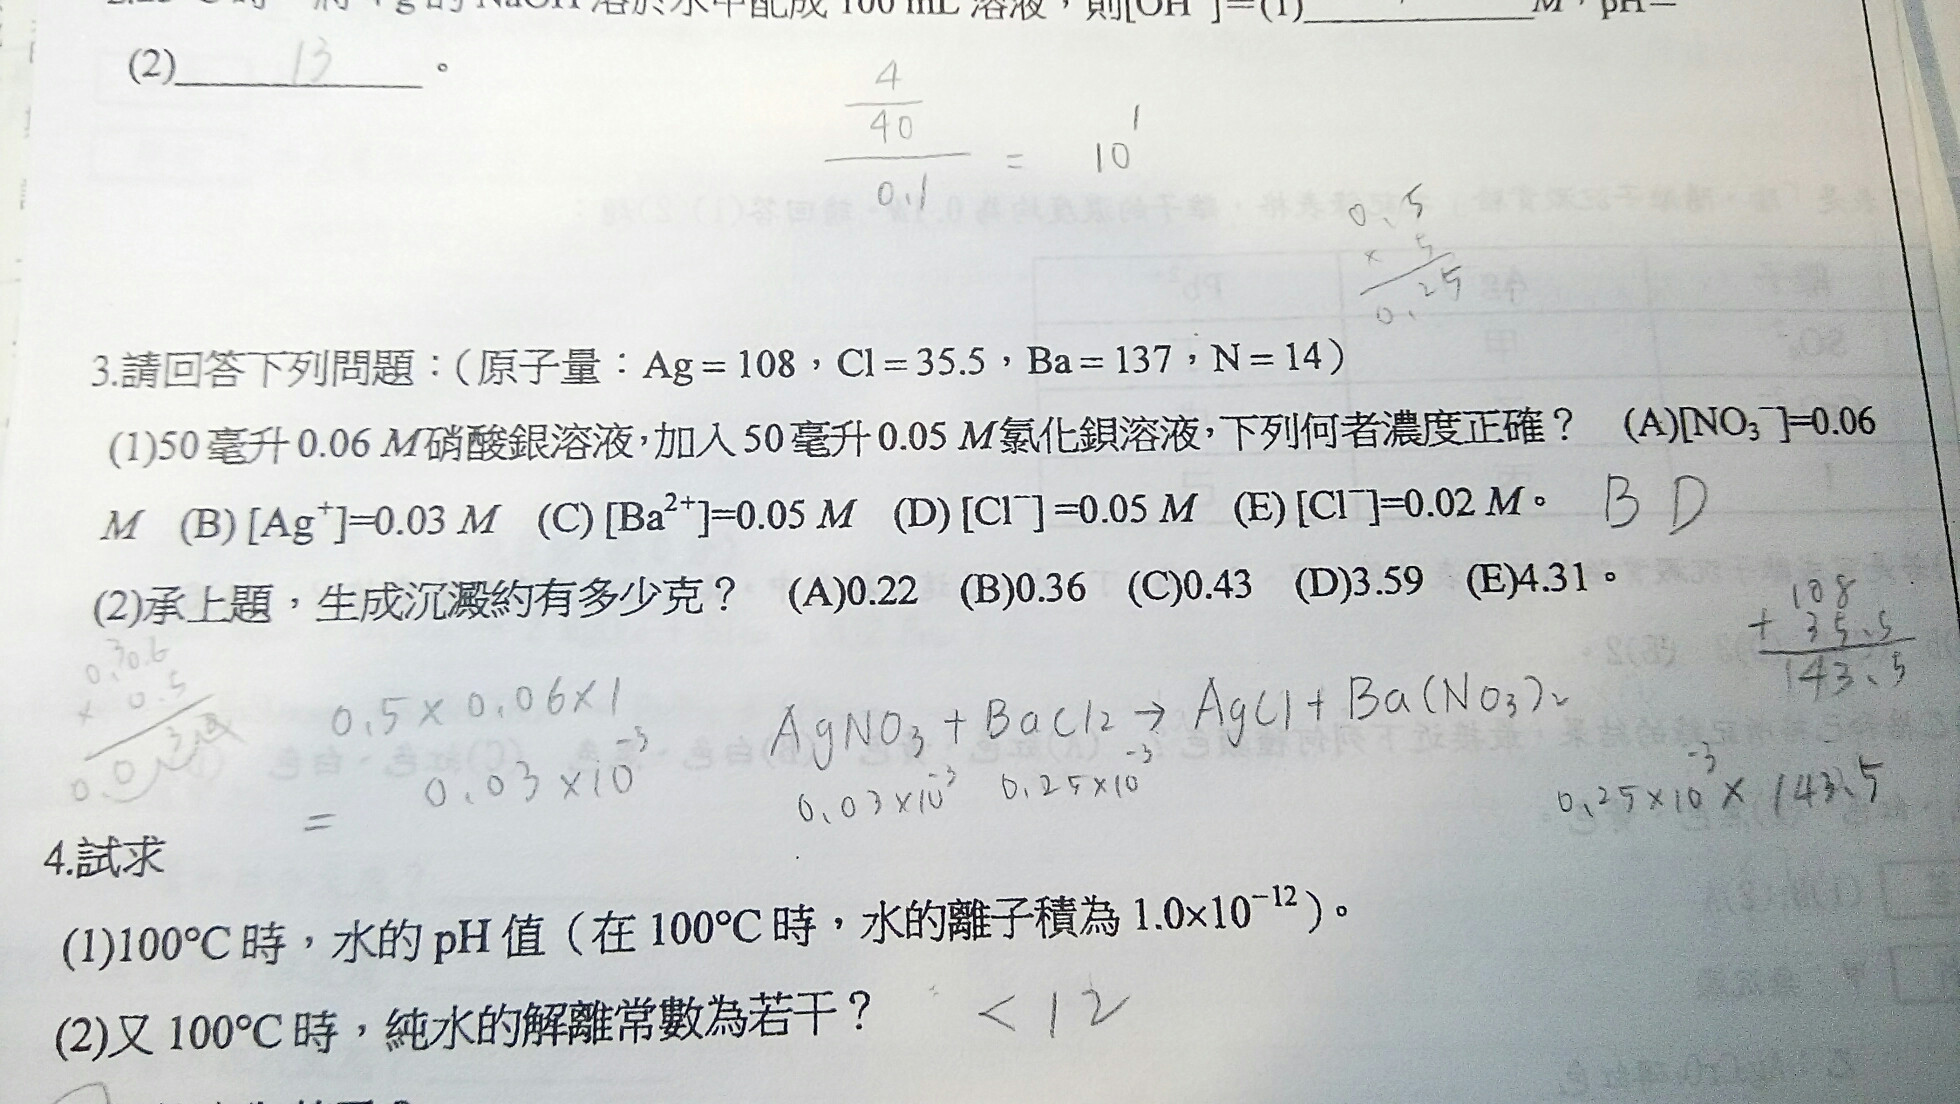 時
g的 NaOH 溶於水中配成 100 mL 溶液，則[OH⁻]=(1)________M，pH=
(2) 13 。
4
40
0.1
= 10¹
0.5
× 5
0.25
3.請回答下列問題：(原子量：Ag = 108，Cl = 35.5，Ba = 137，N = 14)
(1)50 毫升 0.06 M硝酸銀溶液，加入 50 毫升 0.05 M氯化鋇溶液，下列何者濃度正確？ (A)[NO₃⁻]=0.06
M (B) [Ag⁺]=0.03 M (C) [Ba²⁺]=0.05 M (D) [Cl⁻] =0.05 M (E) [Cl⁻]=0.02 M。 B D
(2)承上題，生成沉澱約有多少克？ (A)0.22 (B)0.36 (C)0.43 (D)3.59 (E)4.31。
108
+ 35.5
143.5
× 0.5
0.5 × 0.06 × 1
= 0.03 × 10⁻³
AgNO₃ + BaCl₂ → AgCl + Ba(NO₃)₂
0.03 × 10⁻³ 0.25 × 10⁻³
0.25 × 10⁻³ × 143.5
4.試求
(1)100°C 時，水的 pH 值（在 100°C 時，水的離子積為 1.0×10⁻¹²）。
(2)又 100°C 時，純水的解離常數為若干？ < 12